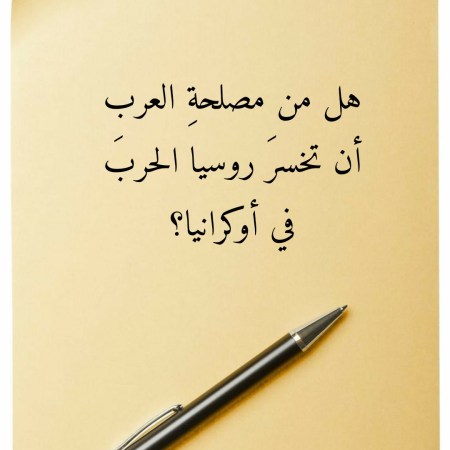 هل من مصلحةِ العرب
أن تخسرَ روسيا الحربَ
في أوكرانيا؟